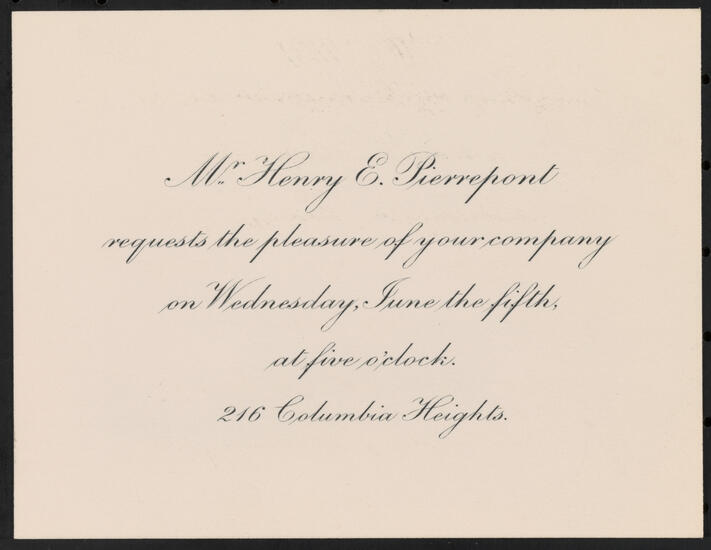 Mr. Henry E. Pierrepont
requests the pleasure of your company
on Wednesday, June the fifth,
at five o'clock.
216 Columbia Heights.